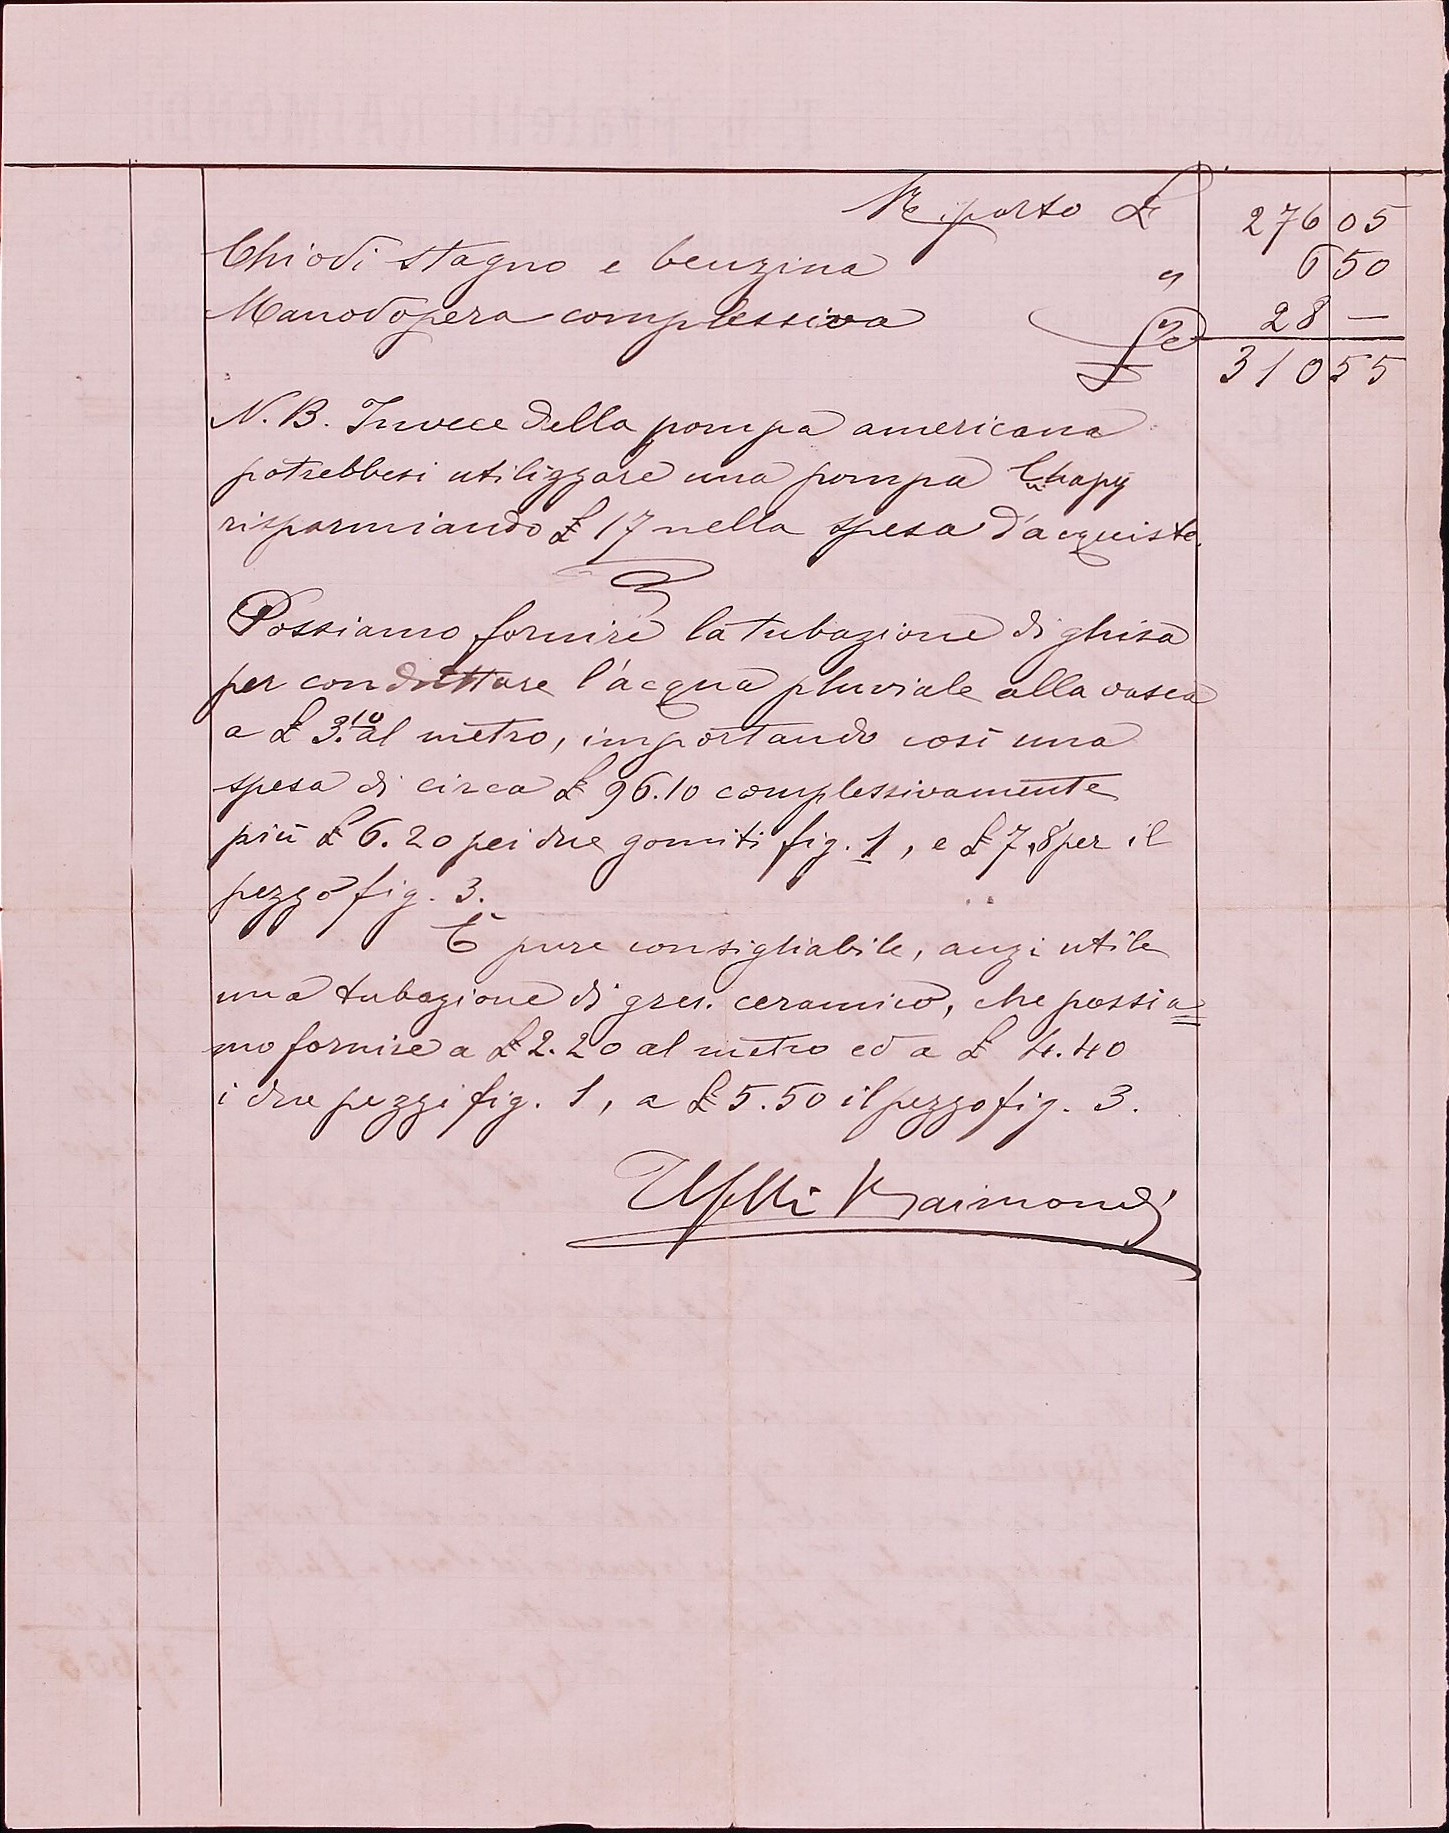 Riporto £ 276 05
Chiodi stagno e benzina " 6 50
Manodopera complessiva " 28 —
£ 310 55
N. B. Invece della pompa americana
potrebbesi utilizzare una pompa
risparmiando £ 17 nella spesa d'acquisto.
Possiamo fornire la tubazione di ghisa
per condutture l'acqua pluviale alla vasca
a £ 3.10 al metro, importando così una
spesa di circa £ 96.10 complessivamente
più £ 6.20 pei due gomiti fig. 1, e £ 7,8 per il
pezzo fig. 3.
È pure consigliabile, anzi utile
una tubazione di gres. ceramico, che possia=
mo fornire a £ 2.20 al metro ed a £ 4.40
i due pezzi fig. 1, a £ 5.50 il pezzo fig. 3.
Raimondi